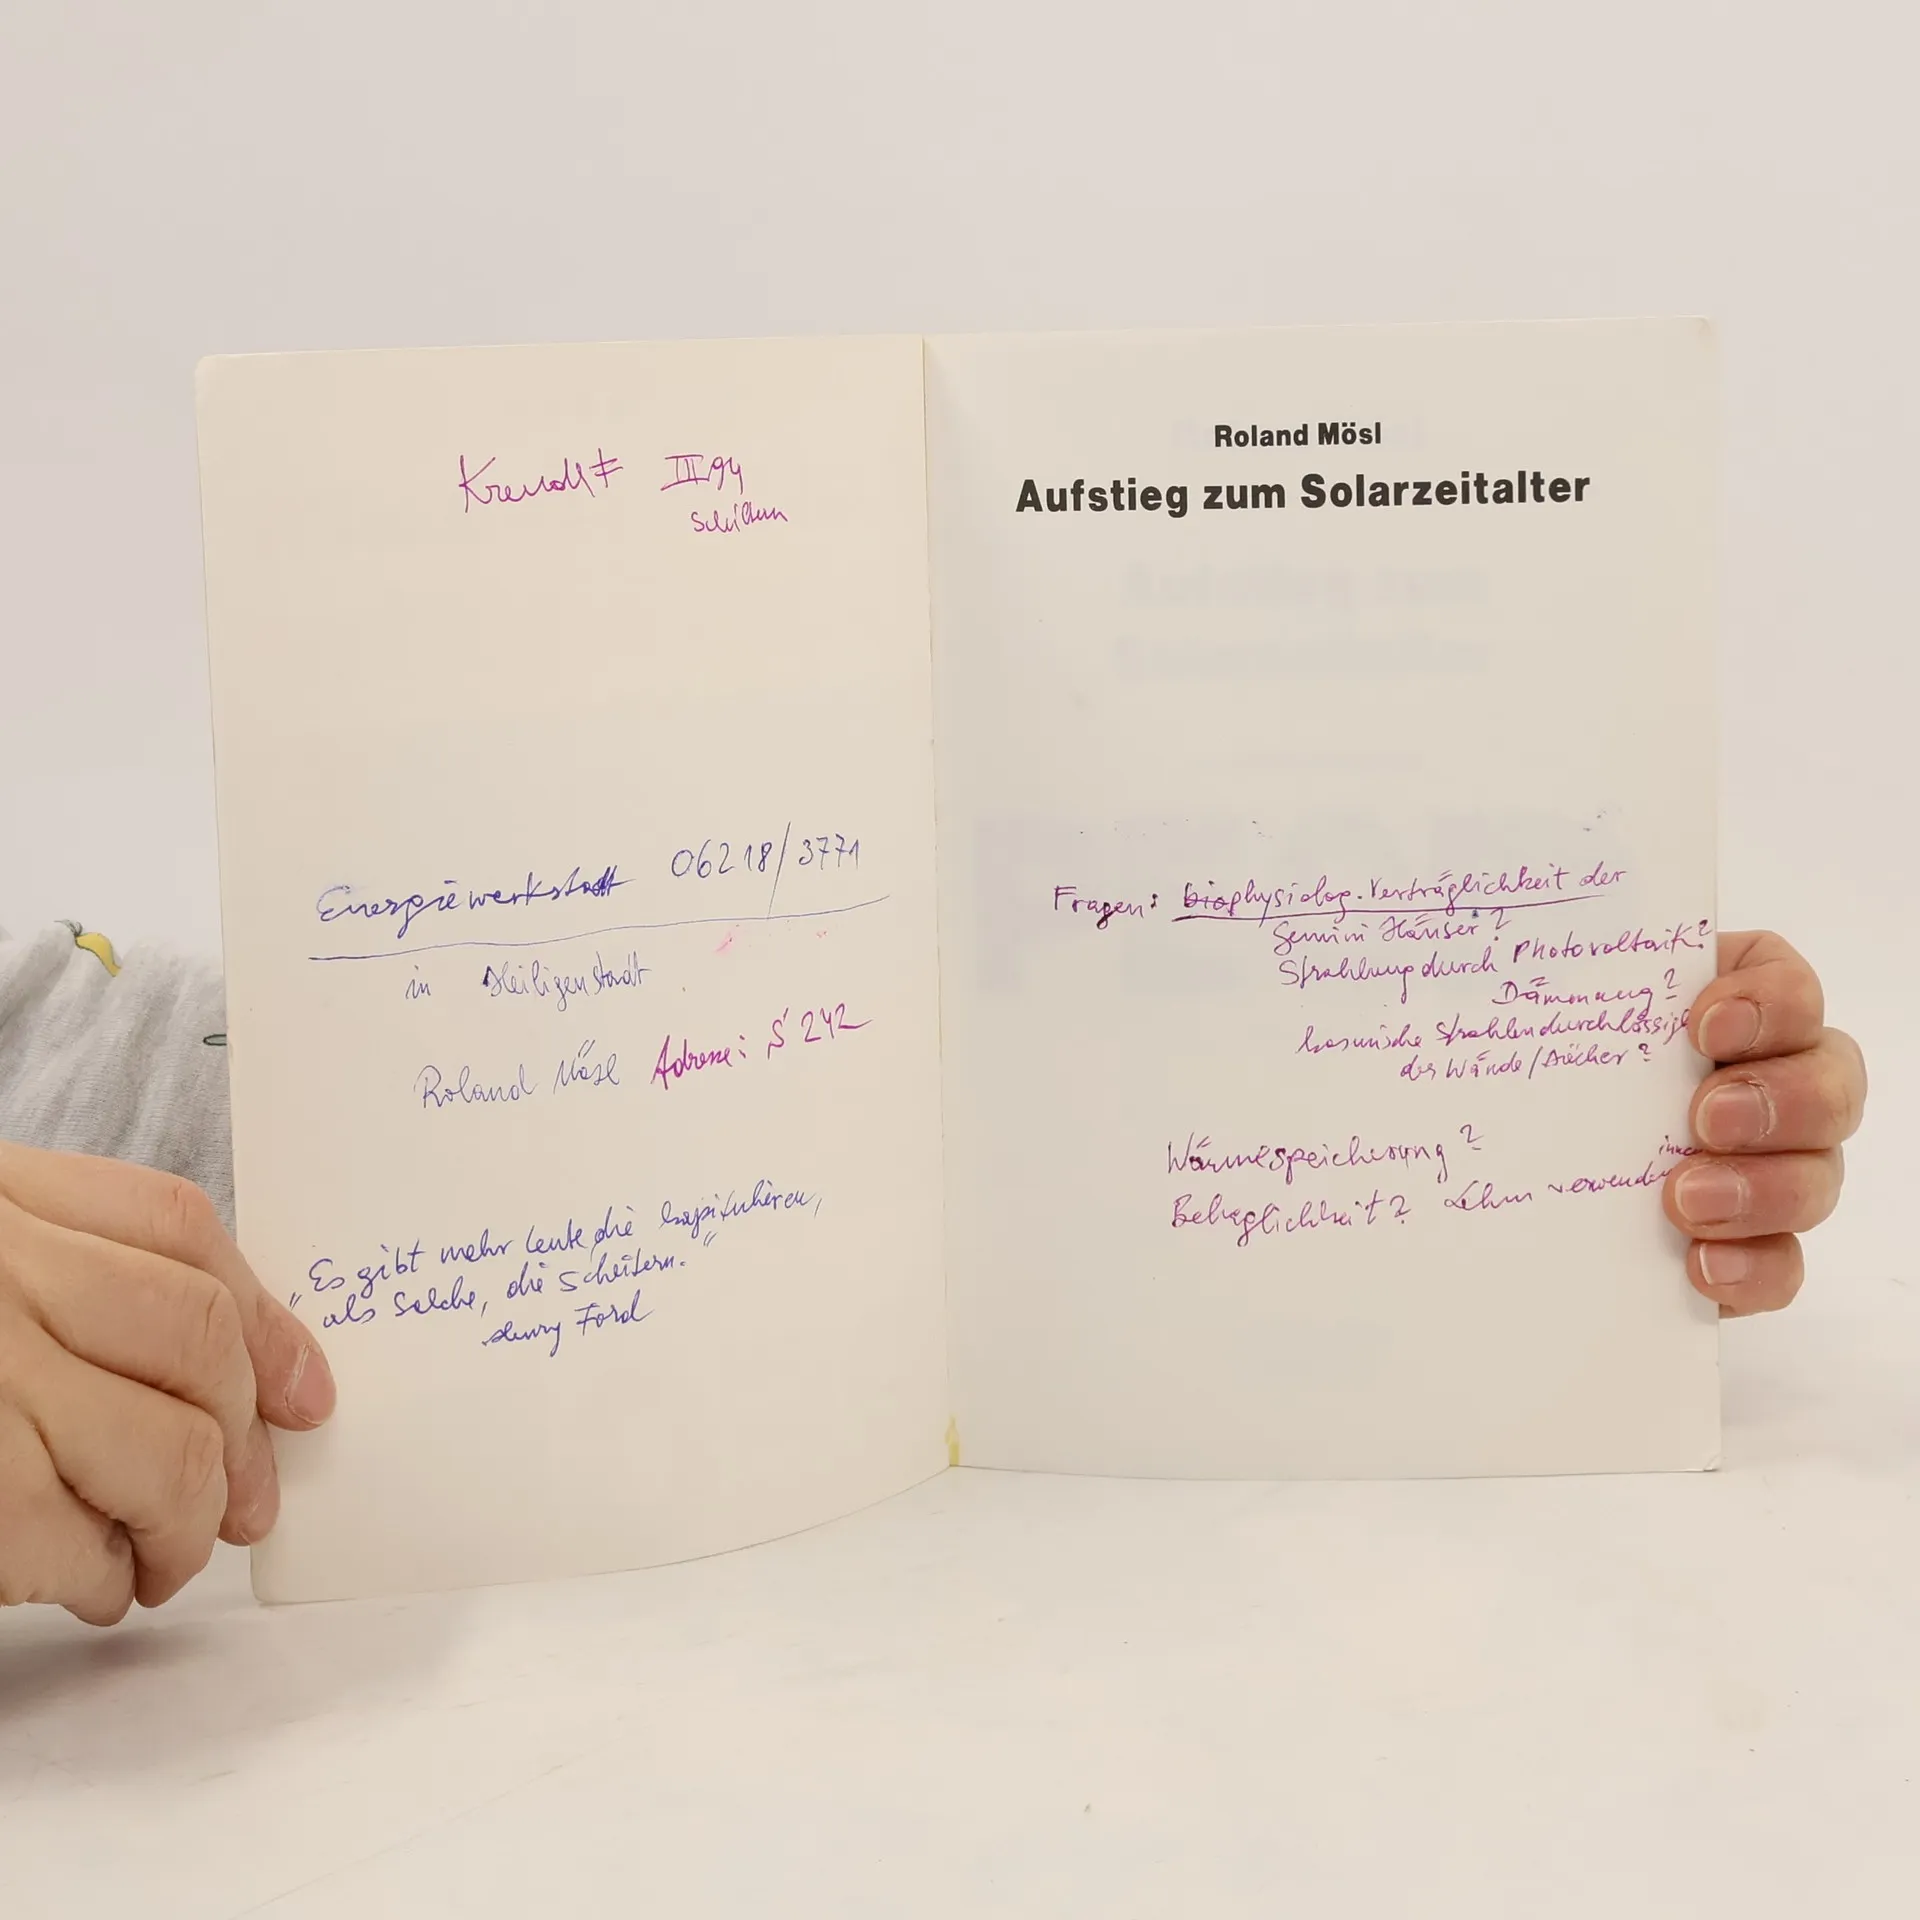 III 94
Energiewerkstatt 06218/3771
in Heiligenstadt
Roland Mösl Adresse: S 242
"Es gibt mehr Leute, die kapitulieren,
als solche, die scheitern."
Henry Ford
Roland Mösl
Aufstieg zum Solarzeitalter
Fragen: biophysiolog. Verträglichkeit der
Gemini Häuser?
Strahlung durch Photovoltaik?
Dämmung?
kosmische Strahlendurchlässigk
der Wände/Dächer?
Wärmespeicherung?
innen
Behaglichkeit? Lehm verwenden